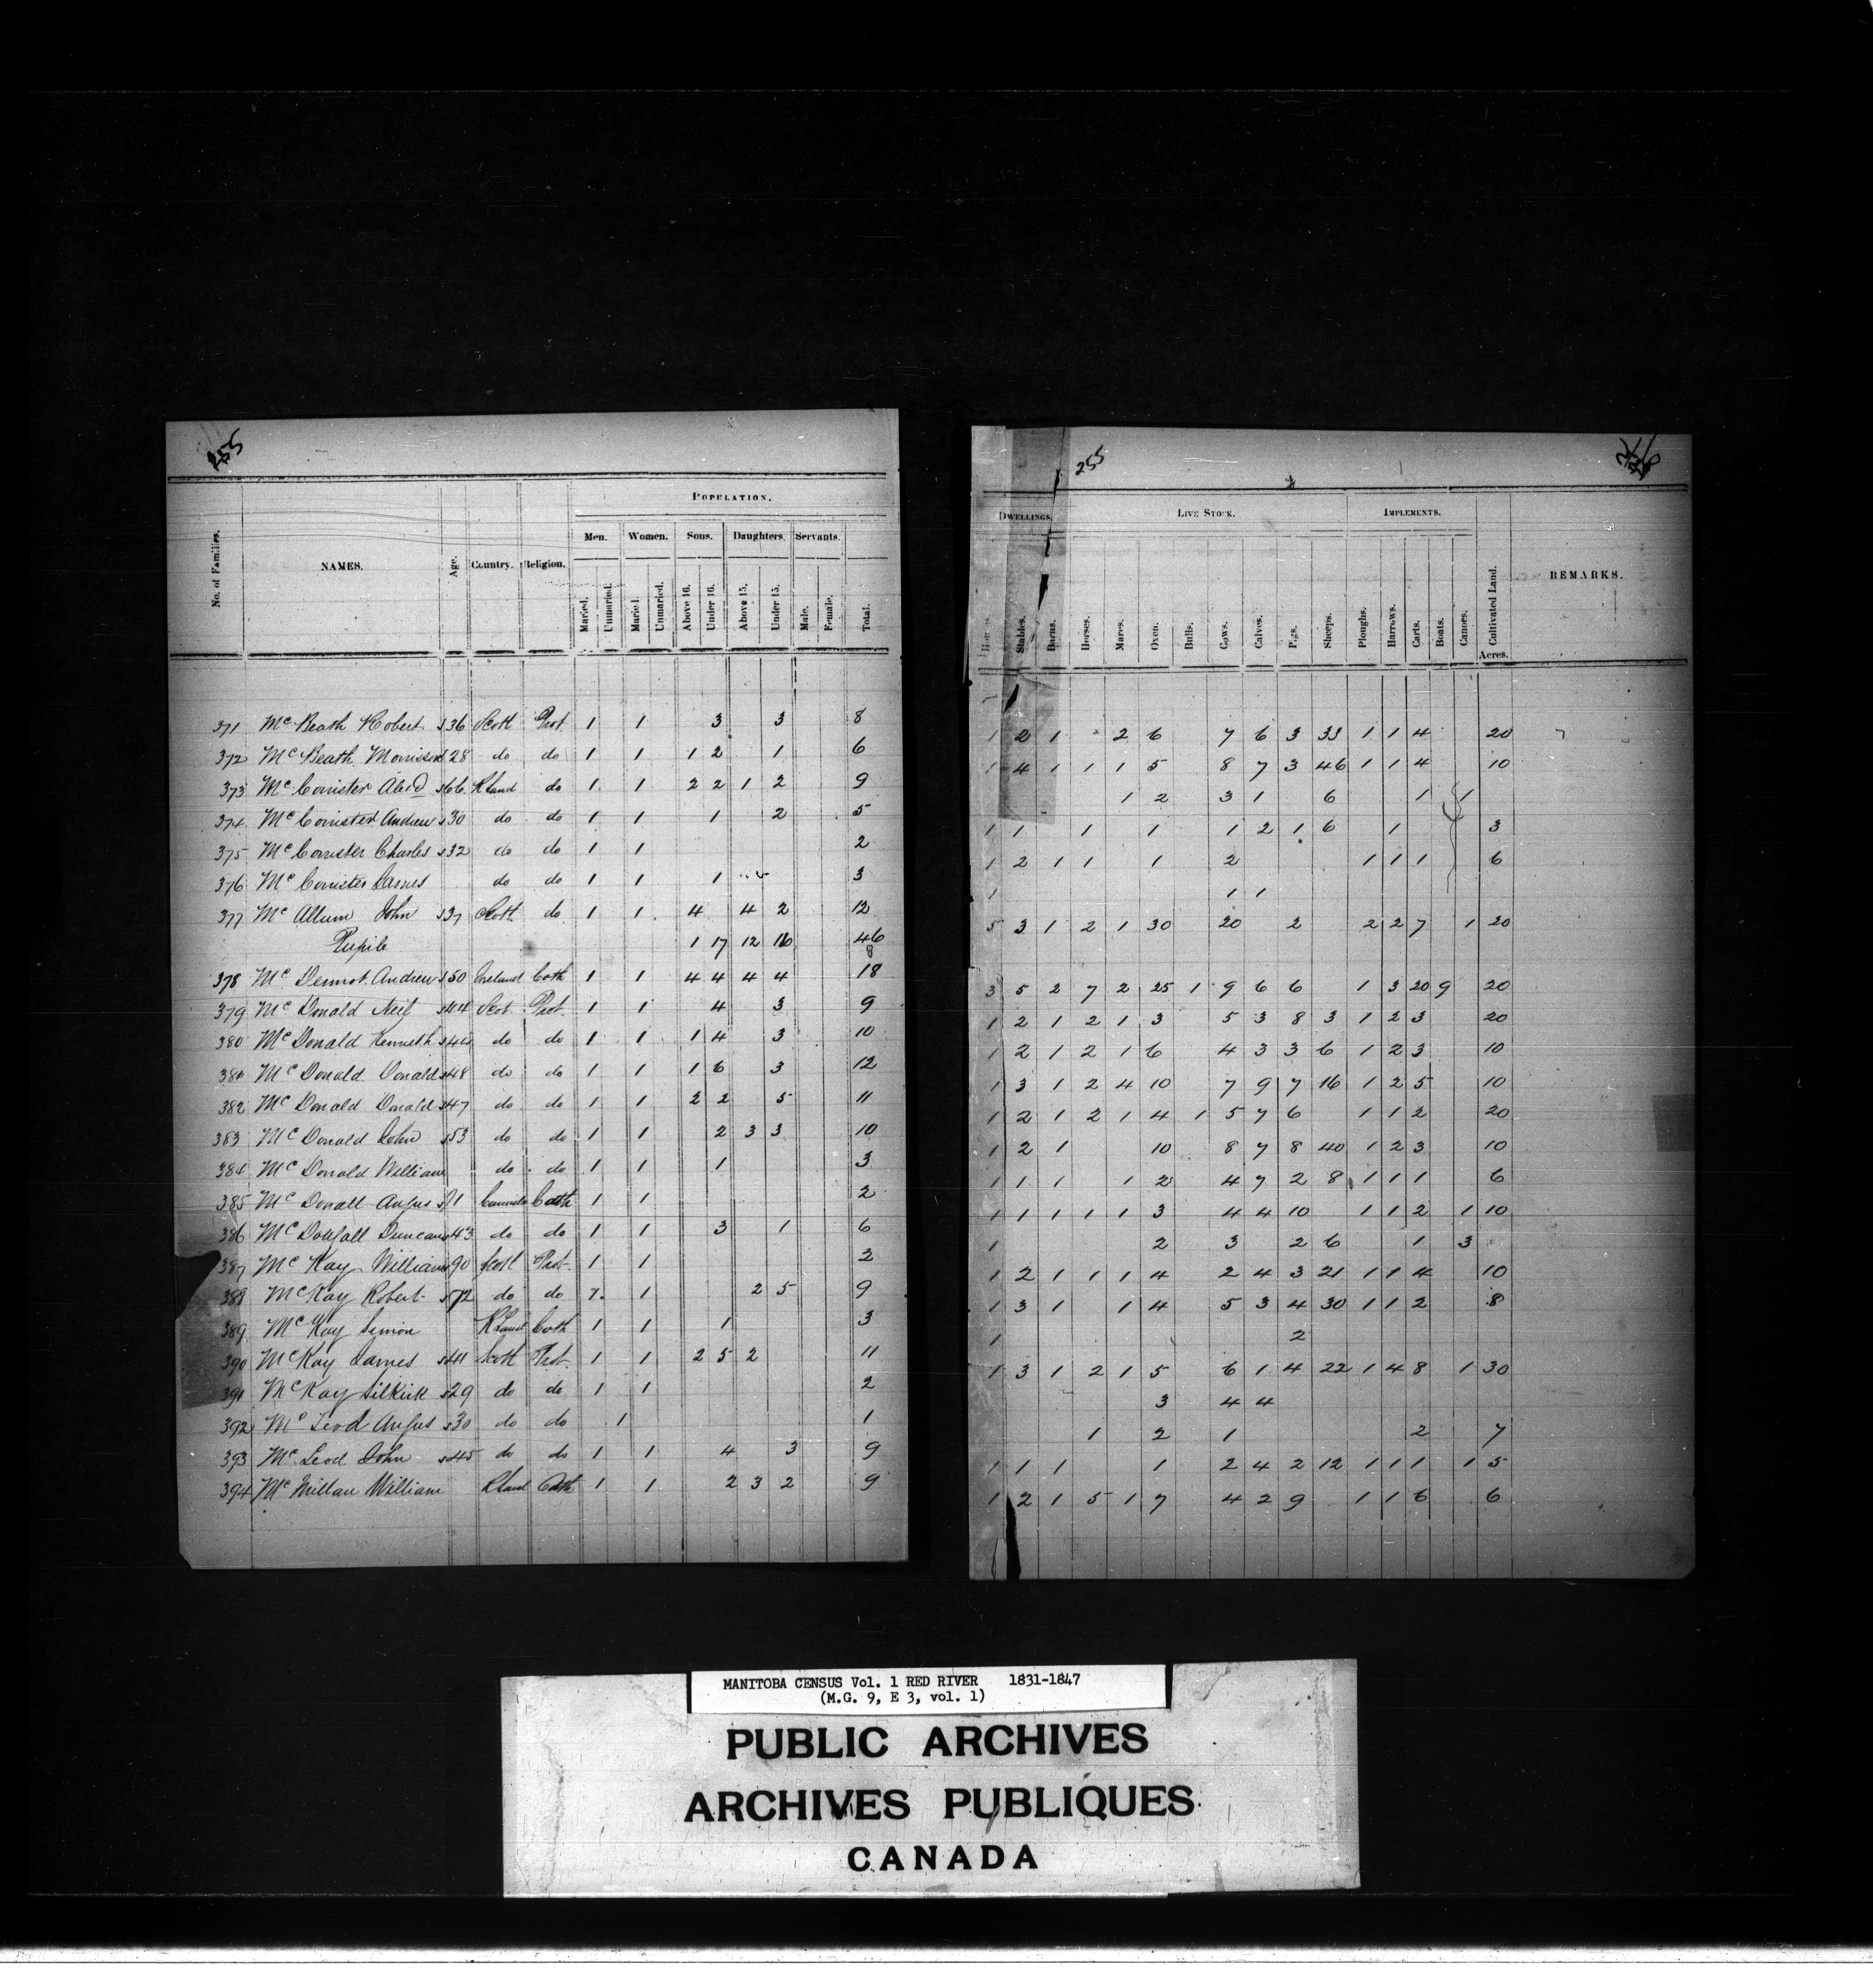 255
POPULATION.
No. of Families. NAMES. Age. Country. Religion. Men. Women. Sons. Daughters. Servants.
Married. Unmarried. Married. Unmarried. Above 16. Under 16. Above 15. Under 15. Male. Female. Total.
371 Mc Beath Robert 36 Scott Prot. 1 1 3 3 8
372 Mc Beath Morrison 28 do do 1 1 1 2 1 6
373 Mc Corrister Alexd 66 RLand do 1 1 2 2 1 2 9
374 Mc Corrister Andrew 30 do do 1 1 1 2 5
375 Mc Corrister Charles 32 do do 1 1 2
376 Mc Corrister James do do 1 1 1 3
377 Mc Allum John 37 Scott. do 1 1 4 4 2 12
Pupils 1 17 12 16 46
8
378 Mc Dermot Andrew 50 Ireland Cath 1 1 4 4 4 4 18
379 Mc Donald Neil 44 Scot. Prot. 1 1 4 3 9
380 Mc Donald Kenneth 44 do do 1 1 1 4 3 10
381 Mc Donald Donald 48 do do 1 1 1 6 3 12
382 Mc Donald Donald 47 do do 1 1 2 2 5 11
383 Mc Donald John 53 do do 1 1 2 3 3 10
384 Mc Donald William do do 1 1 1 3
385 Mc Donall Angus Canada Cath 1 1 2
386 Mc Dougall Duncan 43 do do 1 1 3 1 6
387 Mc Kay William 90 Scott Prot. 1 1 2
388 McKay Robert 72 do do 1 1 2 5 9
389 Mc Kay Simon RLand Cath 1 1 1 3
390 McKay James 41 Scott Prot. 1 1 2 5 2 11
391 McKay Silkirk 29 do do 1 1 2
392 Mc Leod Angus 30 do do 1 1
393 Mc Leod John 45 do do 1 1 4 3 9
394 Mc Millan William RLand Cath 1 1 2 3 2 9
255
DWELLINGS. LIVE STOCK. IMPLEMENTS.
Stables. Barns. Horses. Mares. Oxen. Bulls. Cows. Calves. Pigs. Sheeps. Ploughs. Harrows. Carts. Boats. Canoes. Cultivated Land. REMARKS.
Acres.
1 2 1 2 6 7 6 3 33 1 1 4 20
1 4 1 1 1 5 8 7 3 46 1 1 4 10
1 2 3 1 6 1 1
1 1 1 1 1 2 1 6 1 3
1 2 1 1 1 2 1 1 1 6
1 1 1
5 3 1 2 1 30 20 2 2 2 7 1 20
3 5 2 7 2 25 1 9 6 6 1 3 20 9 20
1 2 1 2 1 3 5 3 8 3 1 2 3 20
1 2 1 2 1 6 4 3 3 6 1 2 3 10
1 3 1 2 4 10 7 9 7 16 1 2 5 10
1 2 1 2 1 4 1 5 7 6 1 1 2 20
1 2 1 10 8 7 8 40 1 2 3 10
1 1 1 1 2 4 7 2 8 1 1 1 6
1 1 1 1 1 3 4 4 10 1 1 2 1 10
1 2 3 2 6 1 3
1 2 1 1 1 4 2 4 3 21 1 1 4 10
1 3 1 1 4 5 3 4 30 1 1 2 8
1 2
1 3 1 2 1 5 6 1 4 22 1 4 8 1 30
3 4 4
1 2 1 2 7
1 1 1 1 2 4 2 12 1 1 1 1 5
1 2 1 5 1 7 4 2 9 1 1 6 6
MANITOBA CENSUS Vol. 1 RED RIVER 1831-1847
(M.G. 9, E 3, vol. 1)
PUBLIC ARCHIVES
ARCHIVES PUBLIQUES
CANADA